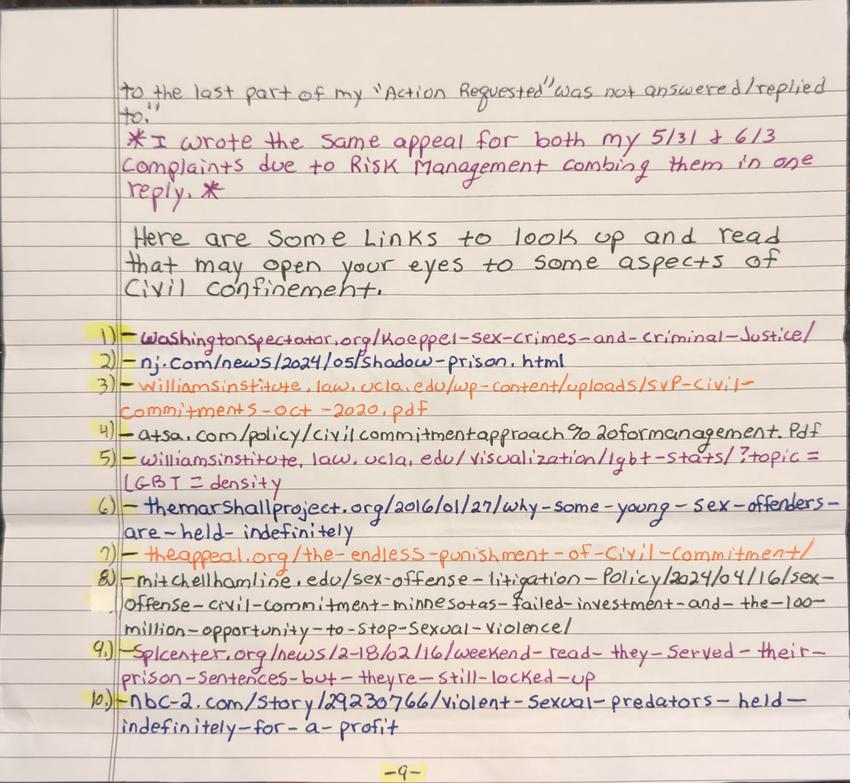 to the last part of my "Action Requested" was not answered/replied
to."
*I wrote the same appeal for both my 5/31 & 6/3
complaints due to Risk Management combing them in one
reply.*
Here are some Links to look up and read
that may open your eyes to some aspects of
Civil confinement.
1) - washingtonspectator.org/Koeppel-sex-crimes-and-criminal-Justice/
2) - nj.com/news/2024/05/shadow-prison.html
3) - williamsinstitute.law.ucla.edu/wp-content/uploads/SVP-Civil-
Commitments-Oct-2020.pdf
4) - atsa.com/policy/civilcommitmentapproach%20formanagement.Pdf
5) - williamsinstitute.law.ucla.edu/visualization/lgbt-stats/?topic=
LGBT=density
6) - themarshallproject.org/2016/01/27/why-some-young-sex-offenders-
are-held-indefinitely
7) - theappeal.org/the-endless-punishment-of-Civil-Commitment/
8.) - mitchellhamline.edu/sex-offense-litigation-Policy/2024/04/16/sex-
offense-civil-commitment-minnesotas-failed-investment-and-the-100-
million-opportunity-to-stop-sexual-violence/
9.) - Splcenter.org/news/2-18/02/16/weekend-read-they-served-their-
prison-sentences-but-theyre-still-locked-up
10.) - nbc-2.com/Story/29230766/violent-sexual-predators-held-
indefinitely-for-a-profit
-9-